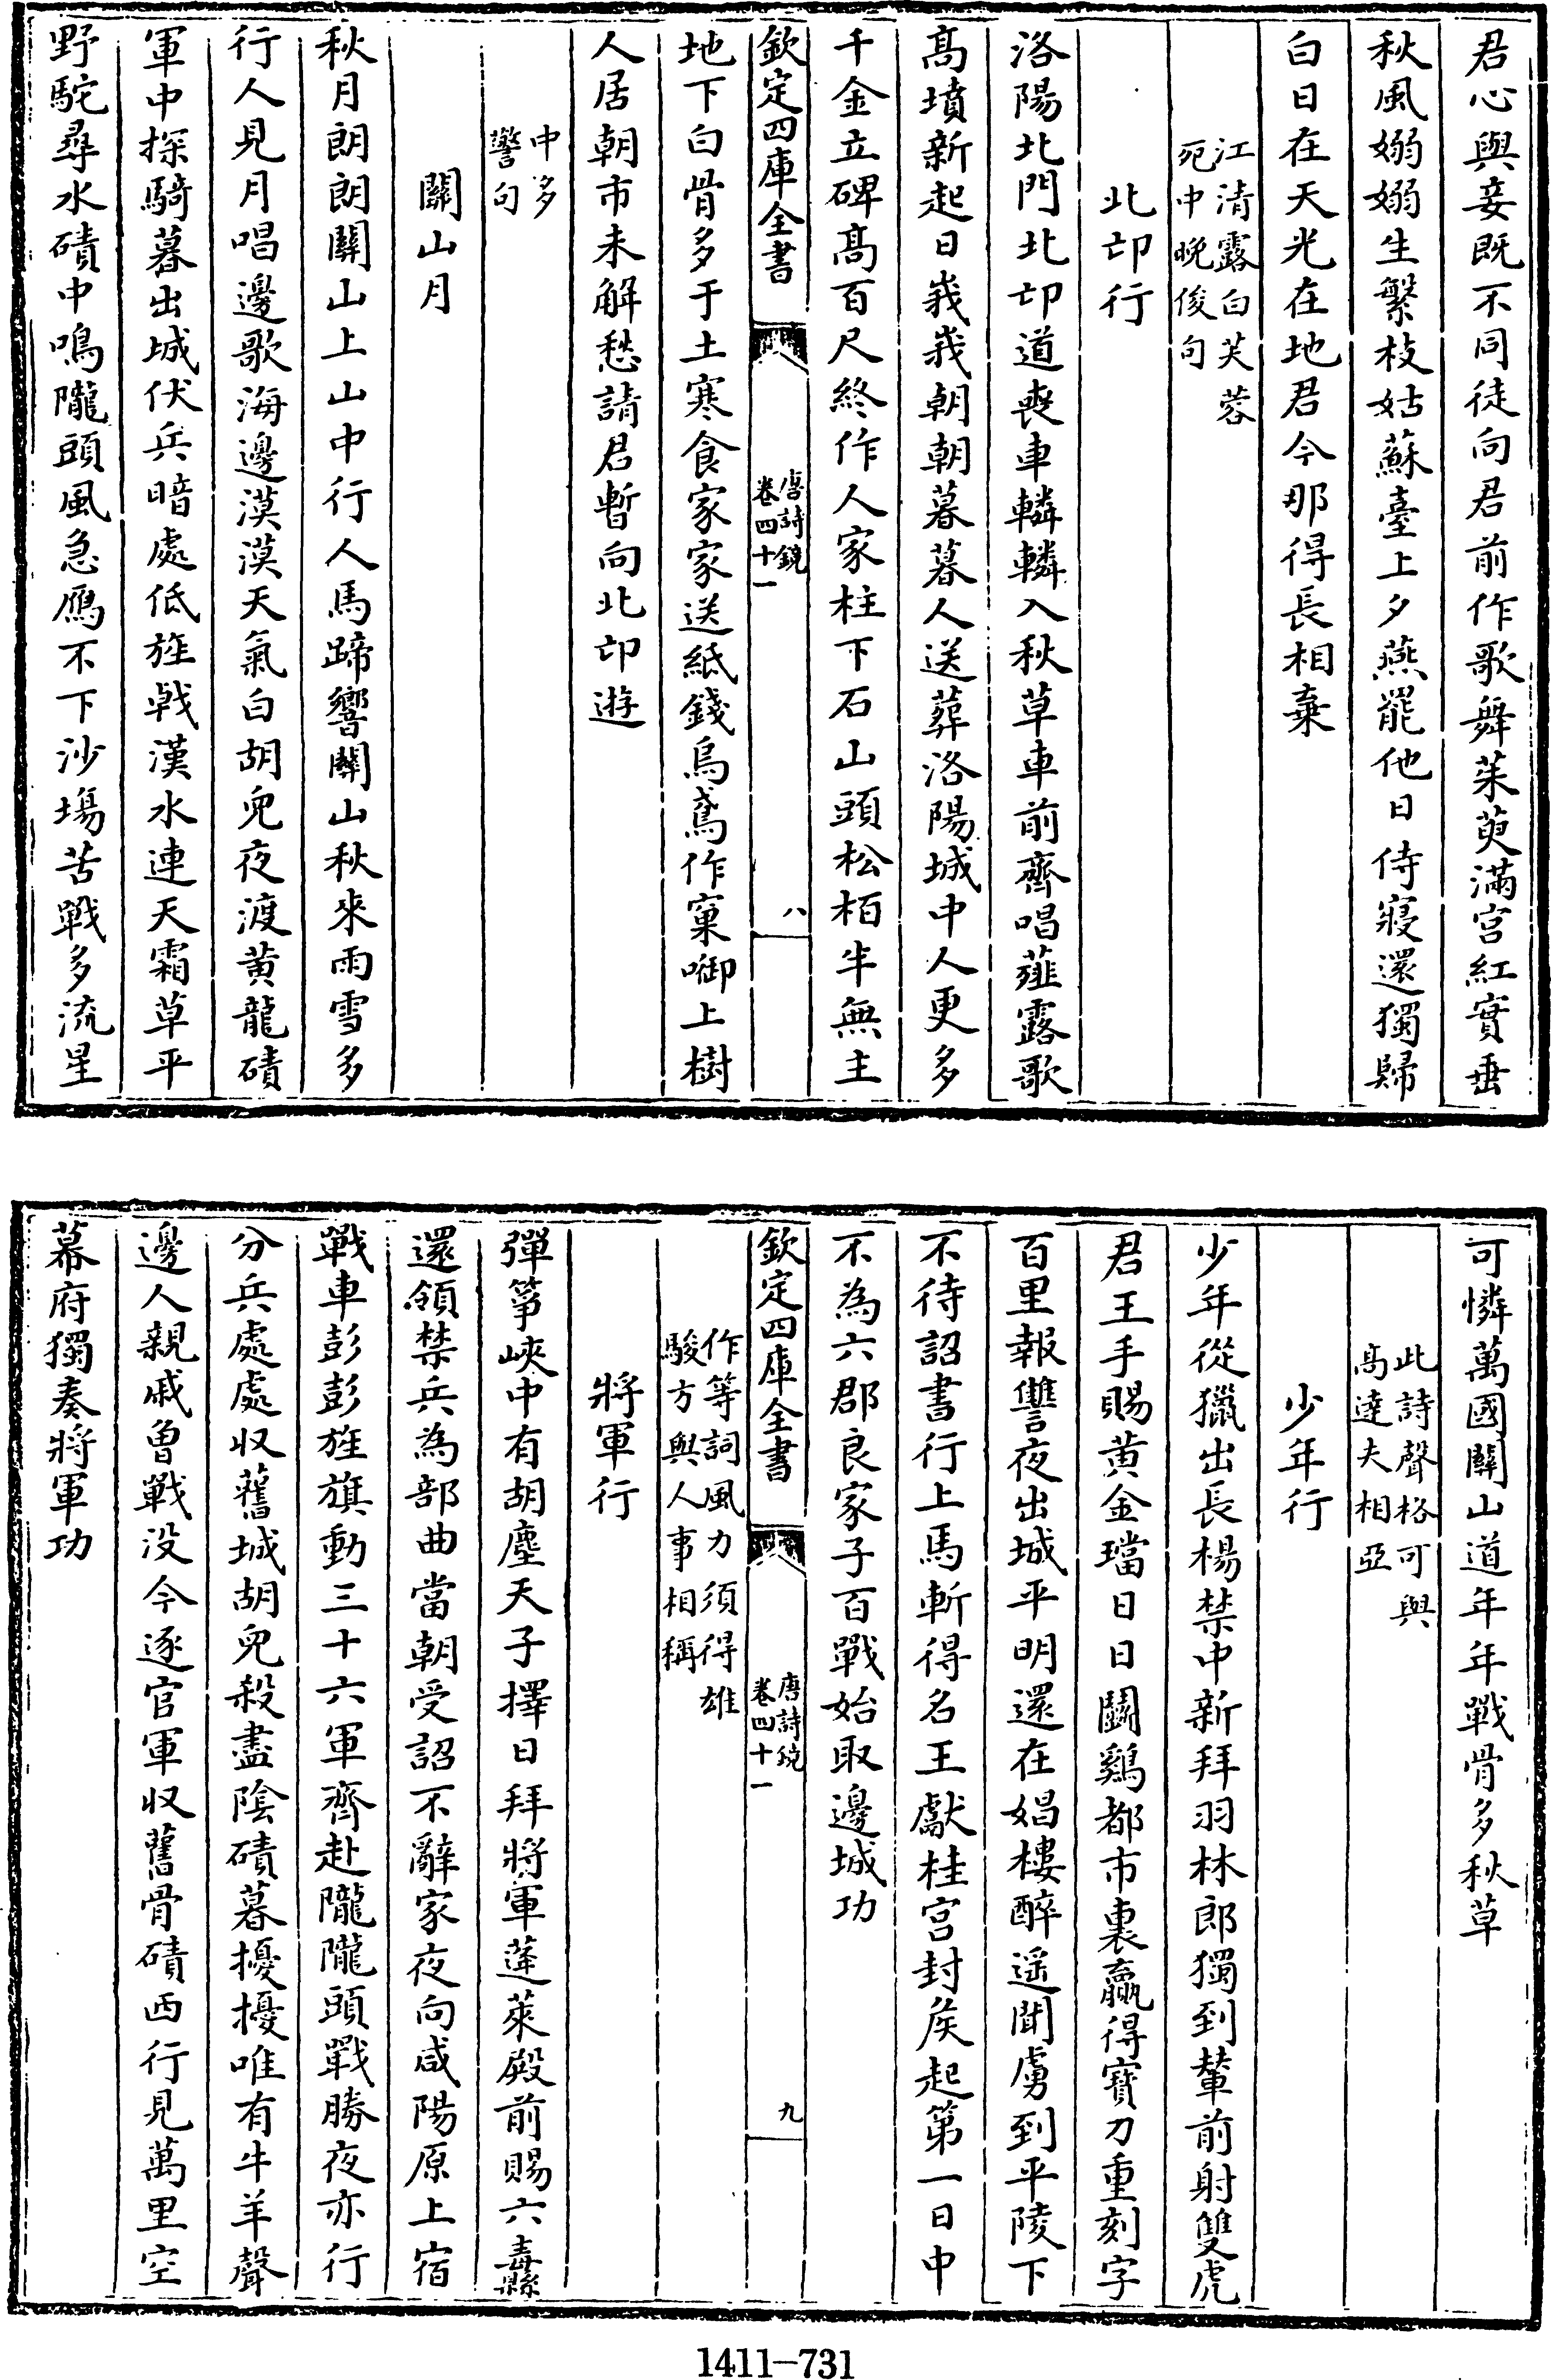 君心與妾既不同徒向君前作歌舞茱萸滿宮紅實垂
秋風嫋嫋生繁枝姑蘇臺上夕燕罷他日侍寢還獨歸
白日在天光在地君今那得長相棄
江清露白芙蓉
死中晚俊句
北邙行
洛陽北門北邙道喪車轔轔入秋草車前齊唱薤露歌
髙墳新起日峩峩朝朝暮暮人送葬洛陽城中人更多
千金立碑髙百尺終作人家柱下石山頭松柏半無主
欽定四庫全書
唐詩鏡
卷四十一
八
地下白骨多于土寒食家家送紙錢烏鳶作窠啣上樹
人居朝市未解愁請君暫向北邙遊
中多
警句
關山月
秋月朗朗關山上山中行人馬蹄響關山秋來雨雪多
行人見月唱邊歌海邊漠漠天氣白胡兒夜渡黄龍磧
軍中探騎暮出城伏兵暗處低旌戟漢水連天霜草平
野駝尋水磧中鳴隴頭風急鴈不下沙塲苦戰多流星
可憐萬國關山道年年戰骨多秋草
此詩聲格可與
髙達夫相亞
少年行
少年從獵出長楊禁中新拜羽林郎獨到輦前射雙虎
君王手賜黄金璫日日鬭鷄都市裏贏得寳刀重刻字
百里報讐夜出城平明還在娼樓醉遥聞虜到平陵下
不待詔書行上馬斬得名王獻桂宫封侯起第一日中
不為六郡良家子百戰始取邊城功
欽定四庫全書
唐詩鏡
卷四十一
九
作等詞風力須得雄
駿方與人事相稱
將軍行
彈箏峽中有胡塵天子擇日拜將軍蓬萊殿前賜六纛
還領禁兵為部曲當朝受詔不辭家夜向咸陽原上宿
戰車彭彭旌旗動三十六軍齊赴隴隴頭戰勝夜亦行
分兵處處収舊城胡兒殺盡陰磧暮擾擾唯有牛羊聲
邊人親戚曾戰没今逐官軍収舊骨磧西行見萬里空
幕府獨奏將軍功
1411—731